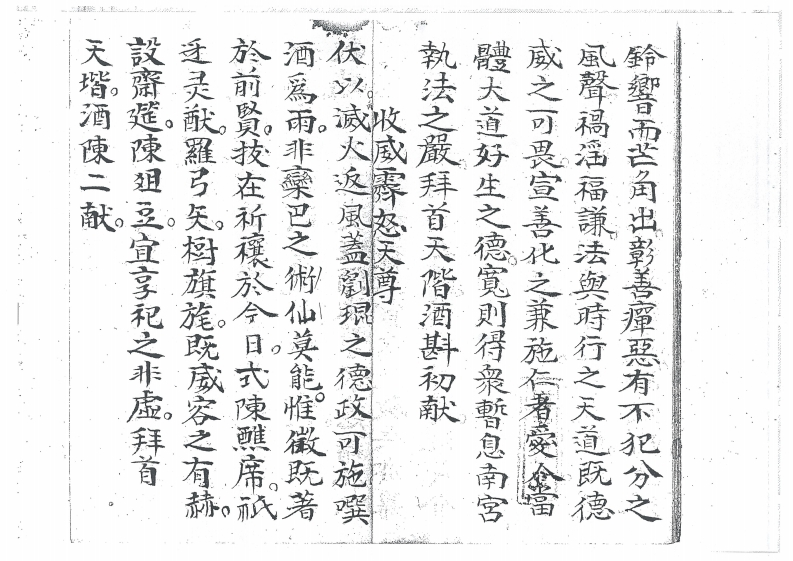 鈴響而芒角出彰善癉惡有不犯分之
風聲禍淫福謙法與時行之天道既德
威之可畏宣善化之兼施仁者愛人富
體大道好生之德。寬則得衆暫息南宮
執法之嚴拜首天階酒斟初献
收威霽怒天尊
伏以。滅火返風蓋劉琨之德政可施噀
酒爲雨。非欒巴之術仙莫能。惟徽既著
於前賢。拔在祈禳於今日。式陳醮席。祇
迓灵猷。羅弓矢。樹旗旄。既威容之有赫。
設齋筵。陳俎豆。宜享祀之非虛。拜首
天堦。酒陳二献。